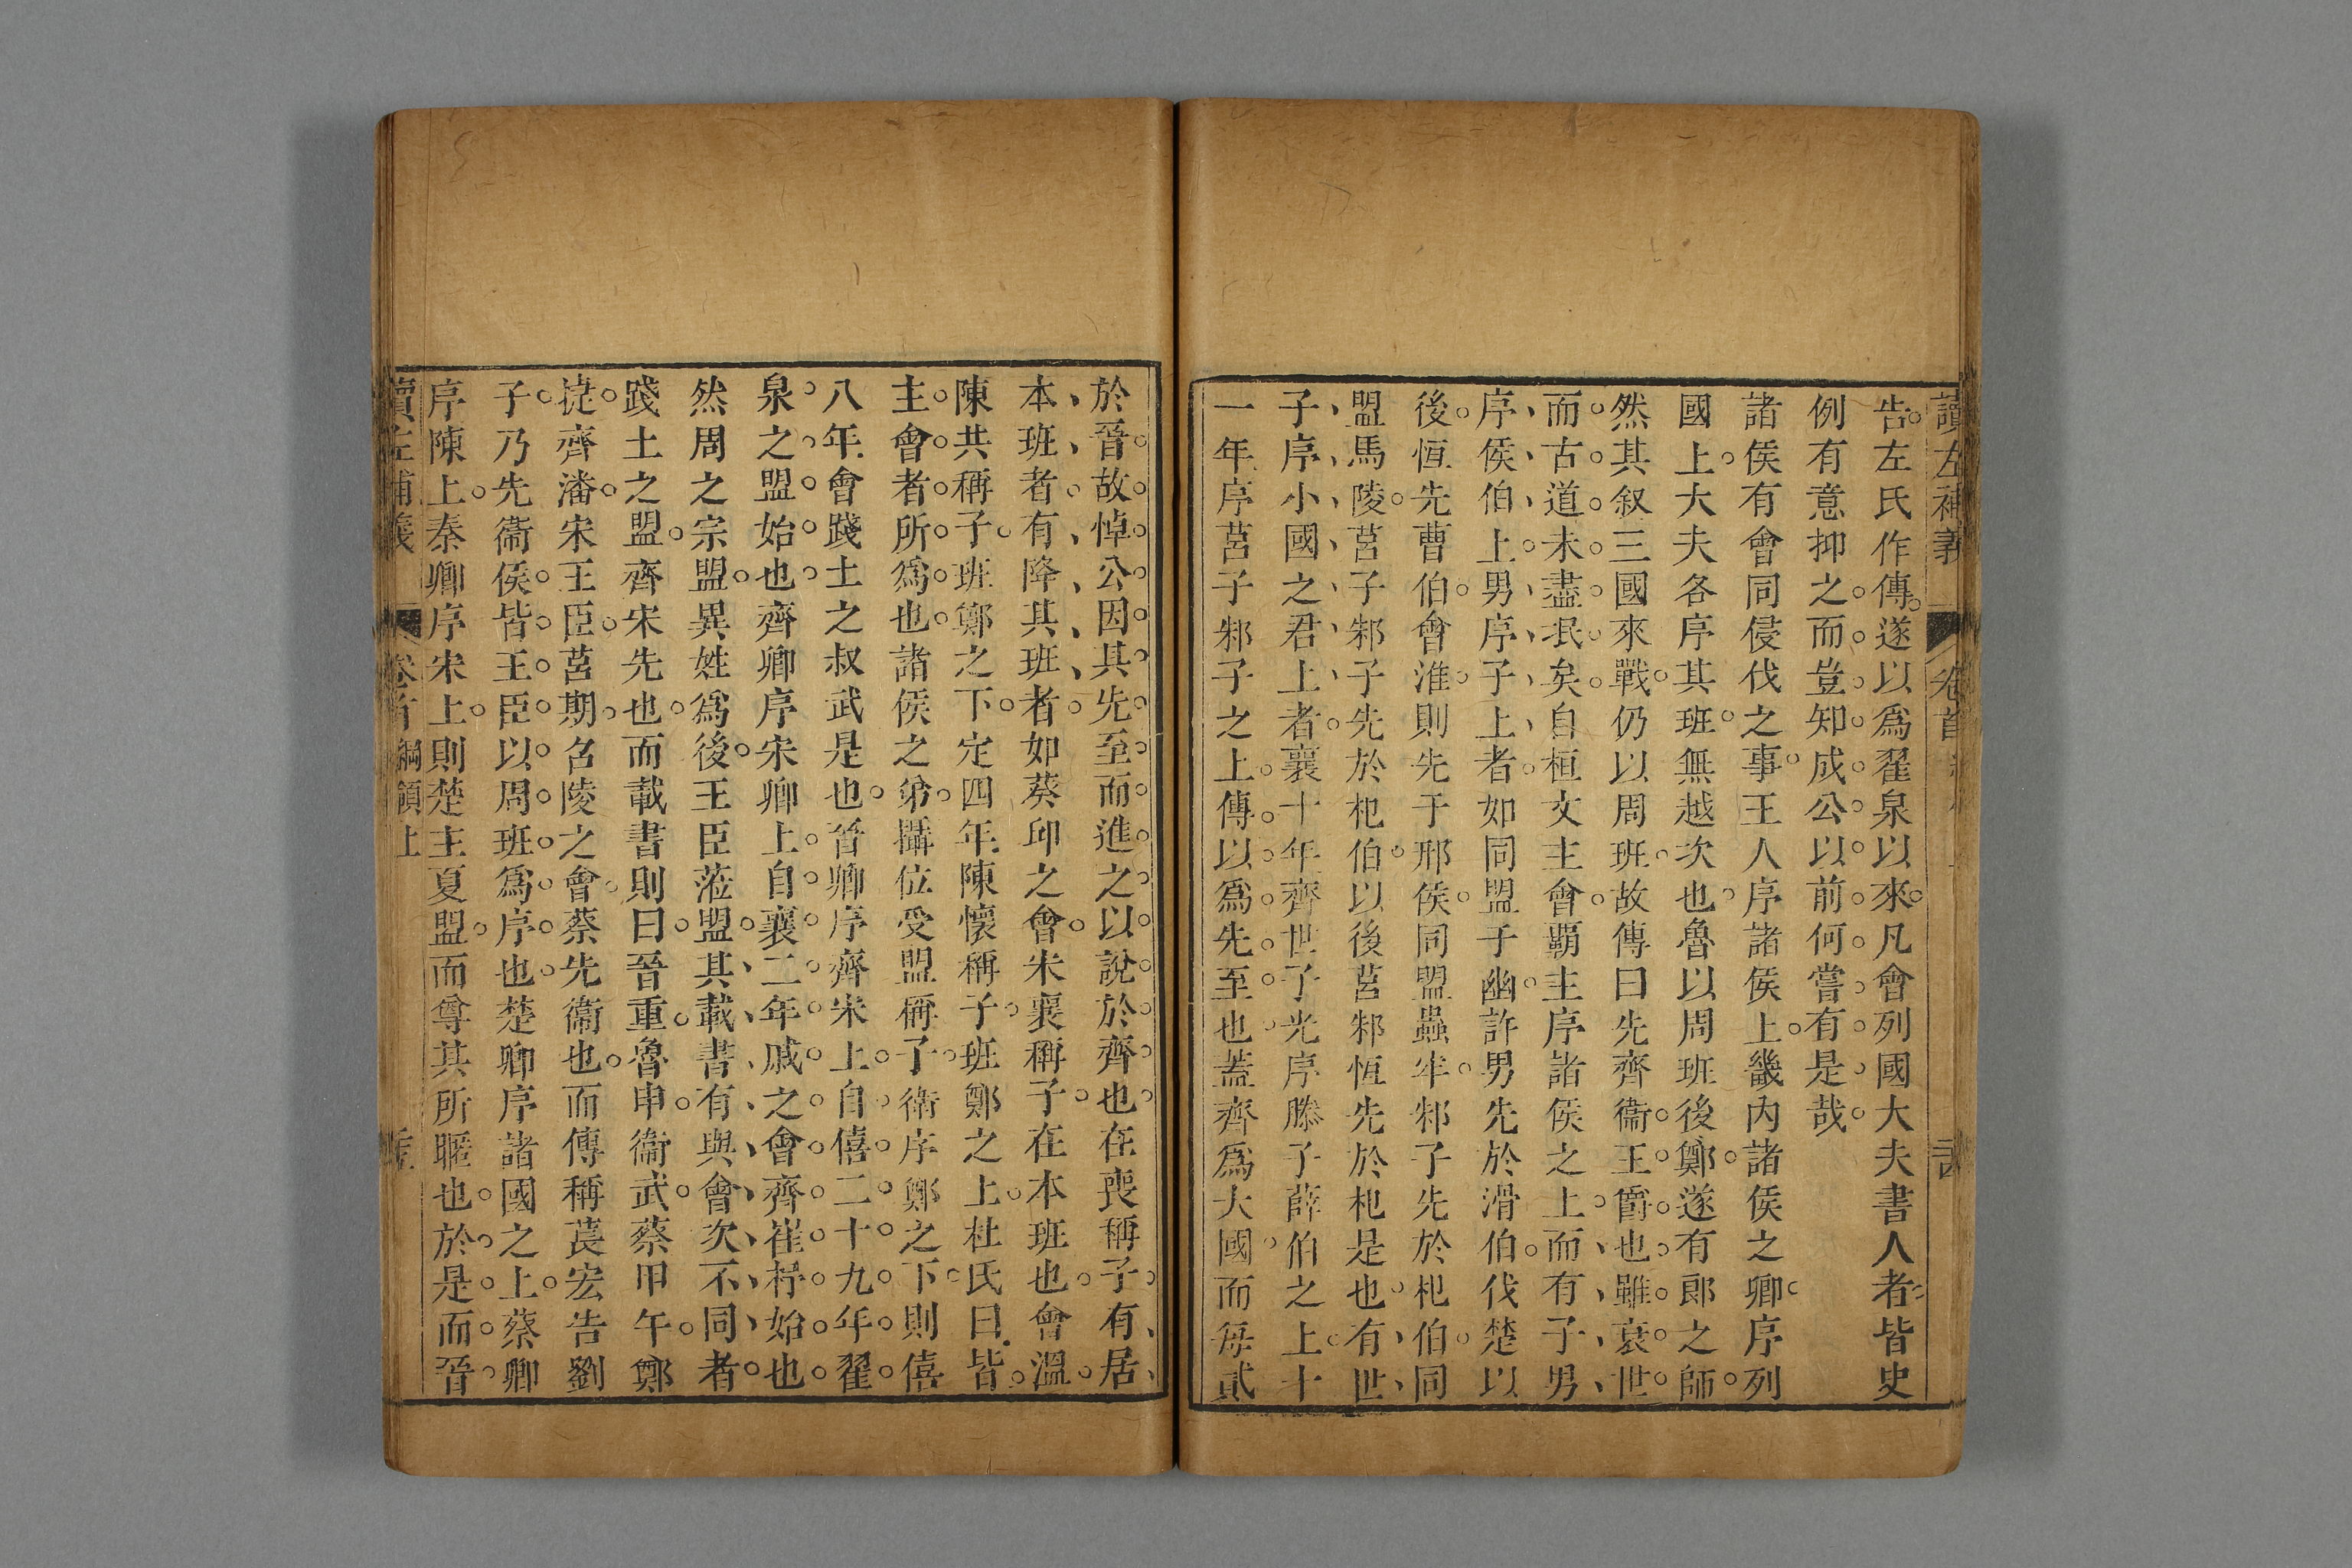 讀左補義 卷首
告左氏作傳遂以爲翟泉以來凡會列國大夫書人者皆史
例有意抑之而豈知成公以前何嘗有是哉
諸侯有會同侵伐之事王人序諸侯上畿內諸侯之卿序列
國上大夫各序其班無越次也魯以周班後鄭遂有郎之師
然其叙三國來戰仍以周班故傳曰先齊衞王爵也雖衰世
而古道未盡泯矣自桓文主會覇主序諸侯之上而有子男
序侯伯上男序子上者如同盟于幽許男先於滑伯伐楚以
後恆先曹伯會淮則先于邢侯同盟蟲牢邾子先於杞伯同
盟馬陵莒子邾子先於杞伯以後莒邾恆先於杞是也有世
子序小國之君上者襄十年齊世子光序滕子薛伯之上十
一年序莒子邾子之上傳以爲先至也蓋齊爲大國而每貳
於晉故悼公因其先至而進之以說於齊也在喪稱子有居
本班者有降其班者如葵邱之會宋襄稱子在本班也會溫
陳共稱子班鄭之下定四年陳懷稱子班鄭之上杜氏曰皆
主會者所爲也諸侯之弟攝位受盟稱子衛序鄭之下則僖
八年會踐土之叔武是也晉卿序齊宋上自僖二十九年翟
泉之盟始也齊卿序宋卿上自襄二年戚之會齊崔杼始也
然周之宗盟異姓爲後王臣涖盟其載書有與會次不同者
踐土之盟齊宋先也而載書則曰晉重魯申衞武蔡甲午鄭
㨗齊潘宋王臣莒期召陵之會蔡先衞也而傳稱萇宏告劉
子乃先衞侯皆王臣以周班爲序也楚卿序諸國之上蔡卿
序陳上秦卿序宋上則楚主夏盟而尊其所暱也於是而晉
讀左補義 卷首 綱領上